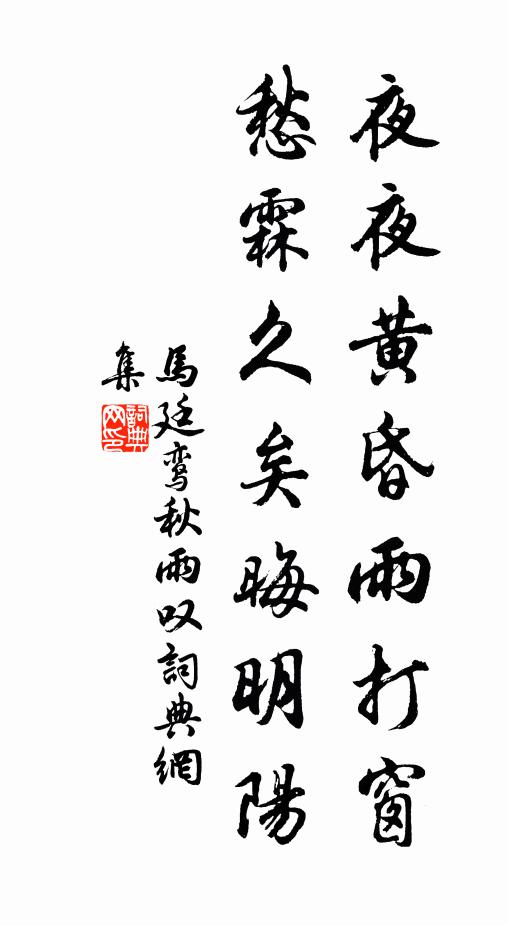 夜夜黄昏雨打窗
愁霖久矣晦明陽
馬廷鸾秋雨叹詞典網
集
詞典
网印